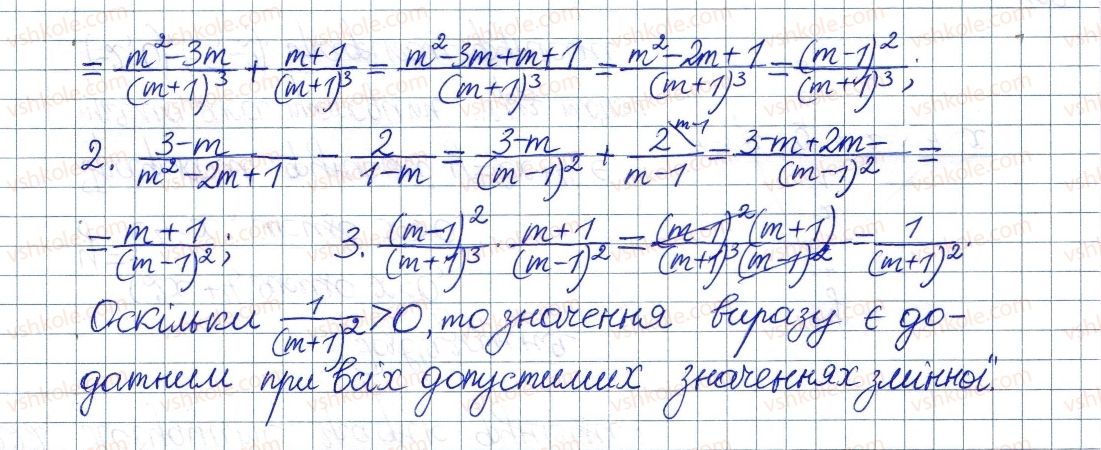 = \frac{m^2-3m}{(m+1)^3} + \frac{m+1}{(m+1)^3} = \frac{m^2-3m+m+1}{(m+1)^3} = \frac{m^2-2m+1}{(m+1)^3} = \frac{(m-1)^2}{(m+1)^3};
2. \frac{3-m}{m^2-2m+1} - \frac{2}{1-m} = \frac{3-m}{(m-1)^2} + \frac{2^{\backslash m-1}}{m-1} = \frac{3-m+2m-}{(m-1)^2} =
= \frac{m+1}{(m-1)^2}; 3. \frac{(m-1)^2}{(m+1)^3} · \frac{m+1}{(m-1)^2} = \frac{(m-1)^2(m+1)}{(m+1)^3(m-1)^2} = \frac{1}{(m+1)^2}.
Оскільки \frac{1}{(m+1)^2} > 0, то значення виразу є до-
датним при всіх допустимих значеннях змінної.